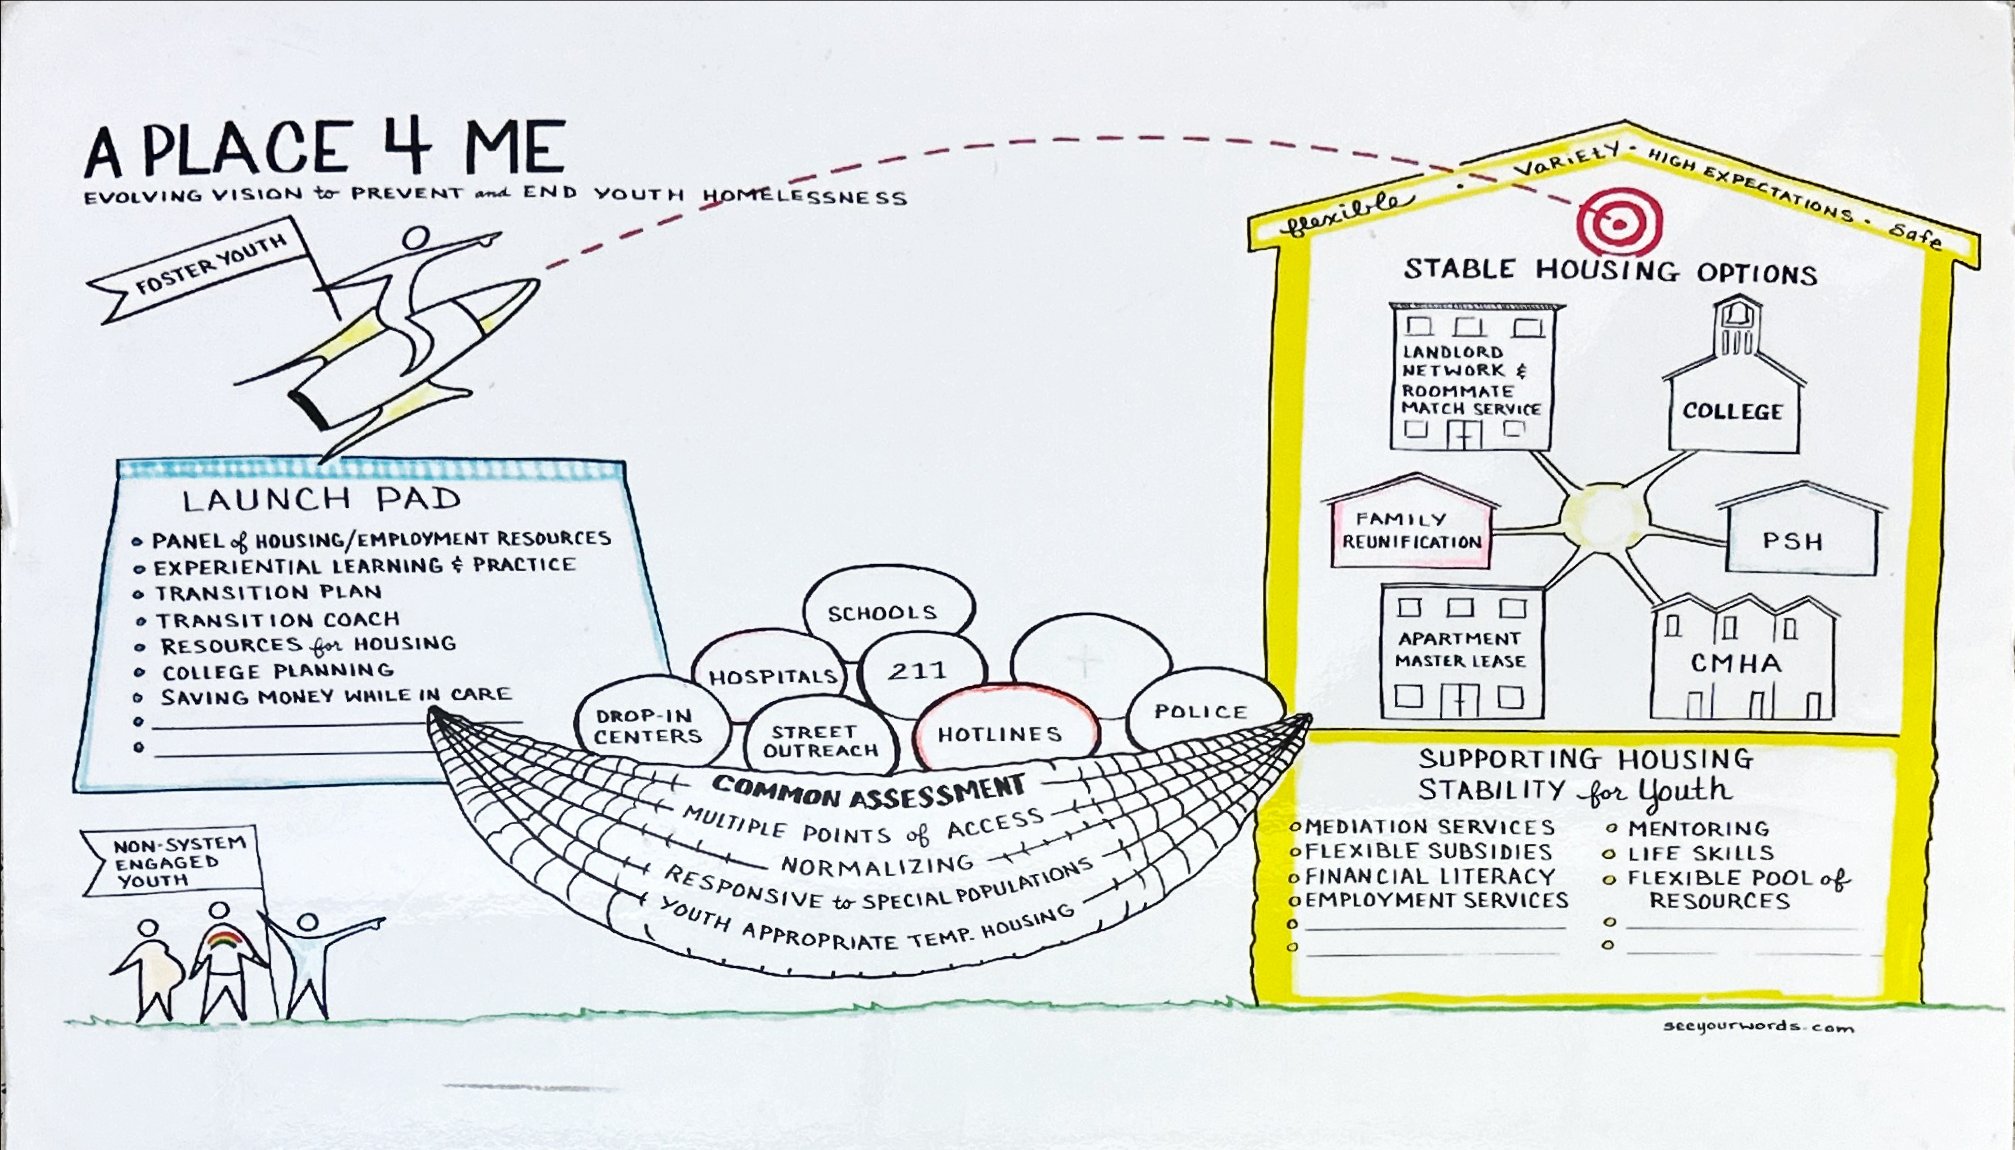 A PLACE 4 ME
EVOLVING VISION to PREVENT and END YOUTH HOMELESSNESS
FOSTER YOUTH
LAUNCH PAD
PANEL of HOUSING/EMPLOYMENT RESOURCES
EXPERIENTIAL LEARNING & PRACTICE
TRANSITION PLAN
TRANSITION COACH
RESOURCES for HOUSING
COLLEGE PLANNING
SAVING MONEY WHILE IN CARE
NON-SYSTEM
ENGAGED
YOUTH
SCHOOLS
HOSPITALS
211
DROP-IN
CENTERS
STREET
OUTREACH
HOTLINES
POLICE
COMMON ASSESSMENT
MULTIPLE POINTS of ACCESS
NORMALIZING
RESPONSIVE to SPECIAL POPULATIONS
YOUTH APPROPRIATE TEMP. HOUSING
flexible · VARIEtY · HIGH EXPECTATIONS · Safe
STABLE HOUSING OPTIONS
LANDLORD
NETWORK &
ROOMMATE
MATCH SERVICE
COLLEGE
FAMILY
REUNIFICATION
PSH
APARTMENT
MASTER LEASE
CMHA
SUPPORTING HOUSING
STABILITY for Youth
MEDIATION SERVICES
FLEXIBLE SUBSIDIES
FINANCIAL LITERACY
EMPLOYMENT SERVICES
MENTORING
LIFE SKILLS
FLEXIBLE POOL of
RESOURCES
seeyourwords.com